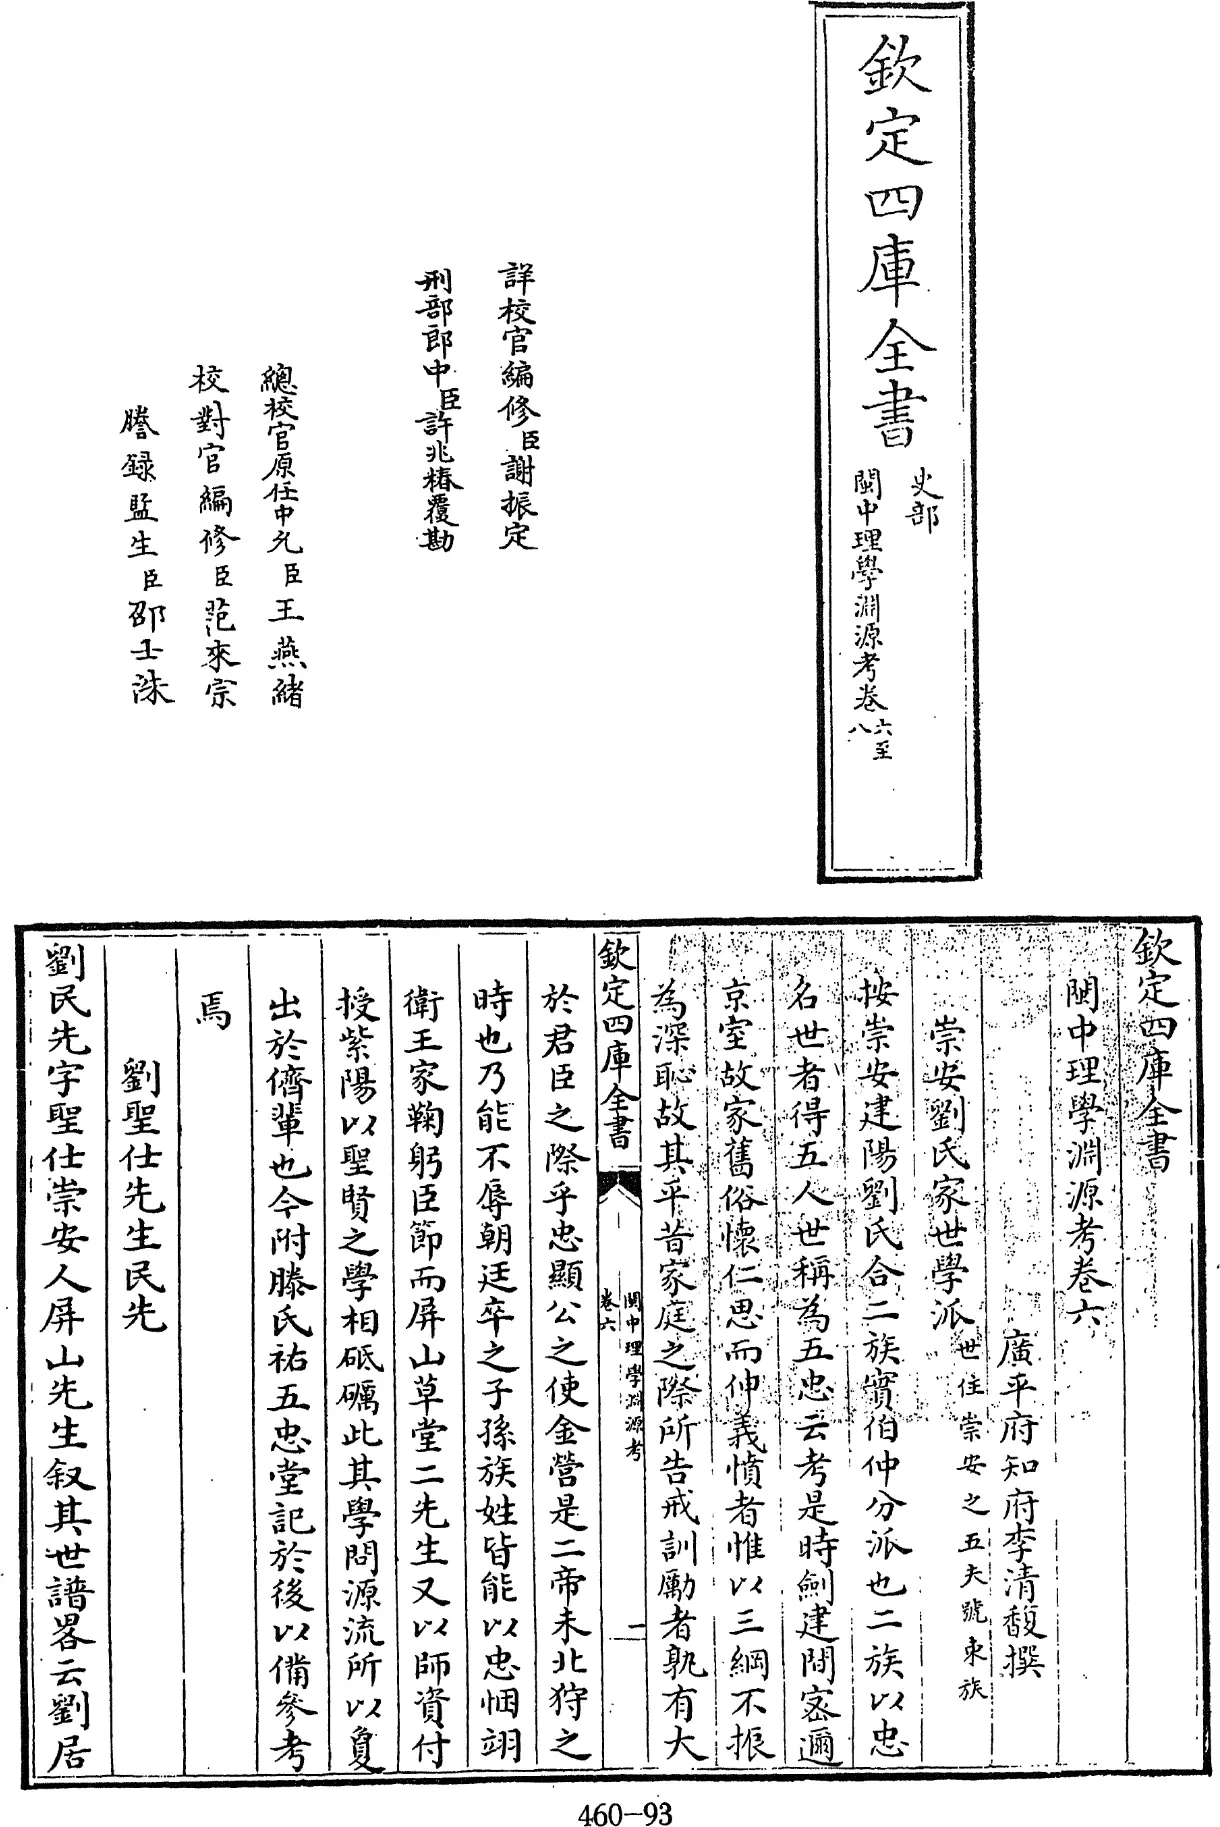 欽定四庫全書
史部
閩中理學淵源考卷六至八
詳校官編修臣謝振定
刑部郎中臣許兆椿覆勘
總校官原任中允臣王燕緒
校對官編修臣范來宗
謄録監生臣邵士洙
欽定四庫全書
閩中理學淵源考卷六
廣平府知府李清馥撰
崇安劉氏家世學派世住崇安之五夫號東族
按崇安建陽劉氏合二族實伯仲分派也二族以忠
名世者得五人世稱為五忠云考是時劍建間密邇
京室故家舊俗懷仁思而仲義憤者惟以三綱不振
為深恥故其平昔家庭之際所告戒訓勵者孰有大
欽定四庫全書
閩中理學淵源考
卷六
一
於君臣之際乎忠顯公之使金營是二帝未北狩之
時也乃能不辱朝廷卒之子孫族姓皆能以忠悃翊
衛王家鞠躬臣節而屏山草堂二先生又以師資付
授紫陽以聖賢之學相砥礪此其學問源流所以夐
出於儕輩也今附滕氏祐五忠堂記於後以備參考
焉
劉聖仕先生民先
劉民先字聖仕崇安人屏山先生叙其世譜畧云劉居
460-93